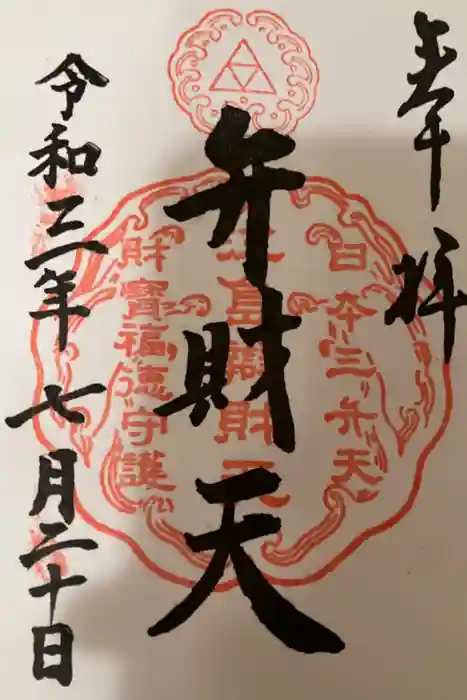 奉拝
日本三弁天
江島辨財天
弁財天
財寳福徳守護
令和三年七月二十日